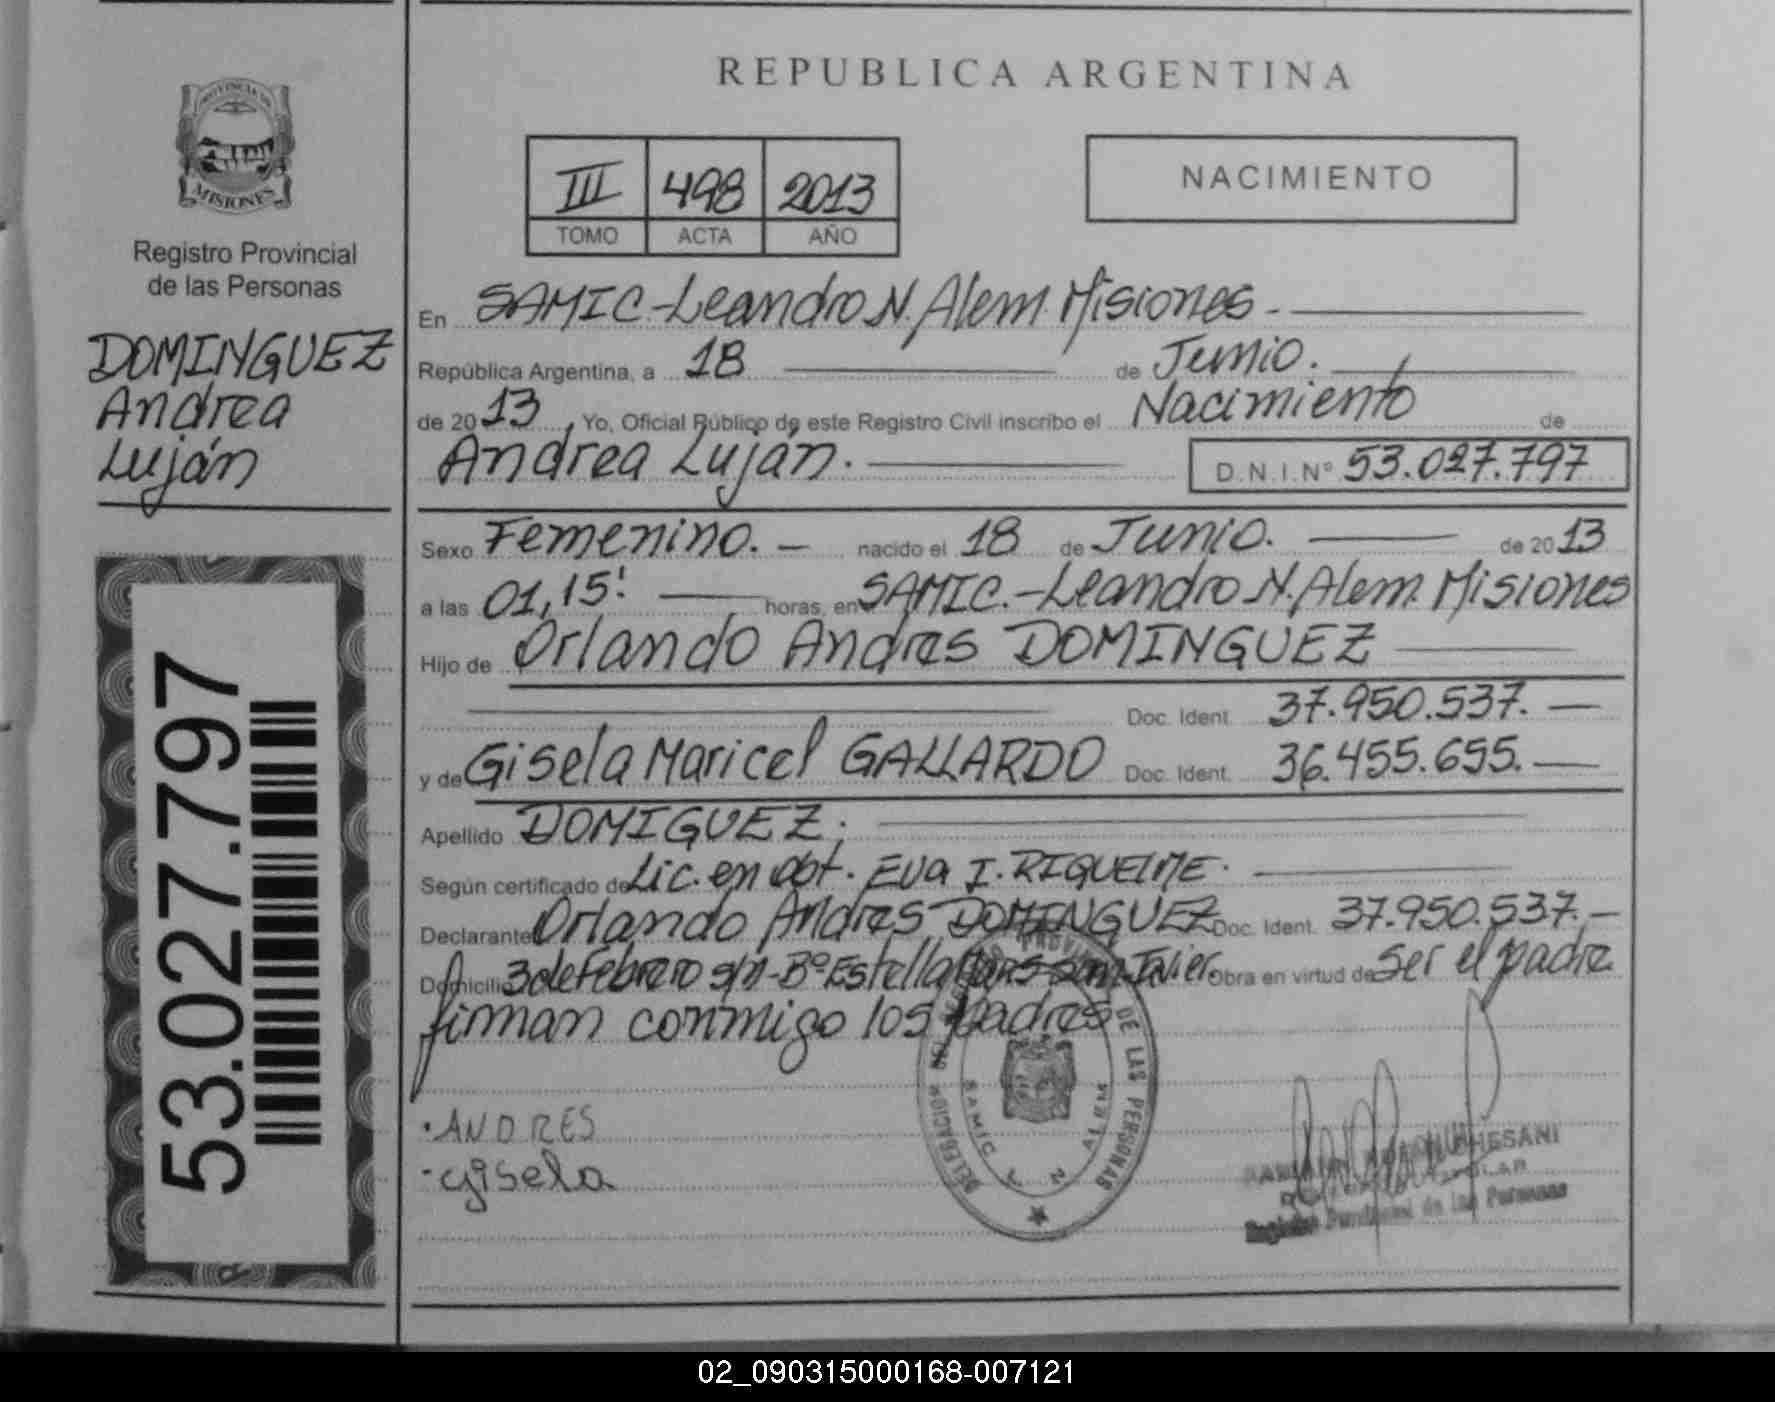 PROVINCIA DE
MISIONES
Registro Provincial
de las Personas
DOMINGUEZ
Andrea
Luján
53.027.797
REPUBLICA ARGENTINA
III 498 2013
TOMO ACTA AÑO
NACIMIENTO
En SAMIC.-Leandro N. Alem. Misiones.-
República Argentina, a 18 de Junio.
de 2013, Yo, Oficial Público de este Registro Civil inscribo el Nacimiento de
Andrea Luján. D.N.I.Nº 53.027.797
Sexo Femenino. - nacido el 18 de Junio. de 2013
a las 01,15' horas, en SAMIC.-Leandro N. Alem. Misiones
Hijo de Orlando Andres DOMINGUEZ
Doc. Ident. 37.950.537.-
y de Gisela Maricel GALLARDO Doc. Ident. 36.455.655.-
Apellido DOMIGUEZ.
Según certificado de Lic. en obt. Eva I. RIQUELME.
Declarante Orlando Andres DOMINGUEZ Doc. Ident. 37.950.537.-
Domicilio 3 de Febrero s/n-Bº Estella San Javier. Obra en virtud de ser el padre
firman conmigo los padres
·ANDRES
-gisela
DELEGACION DE LAS PERSONAS
SAMIC L N ALEM
Registro Provincial de las Personas
02_090315000168-007121